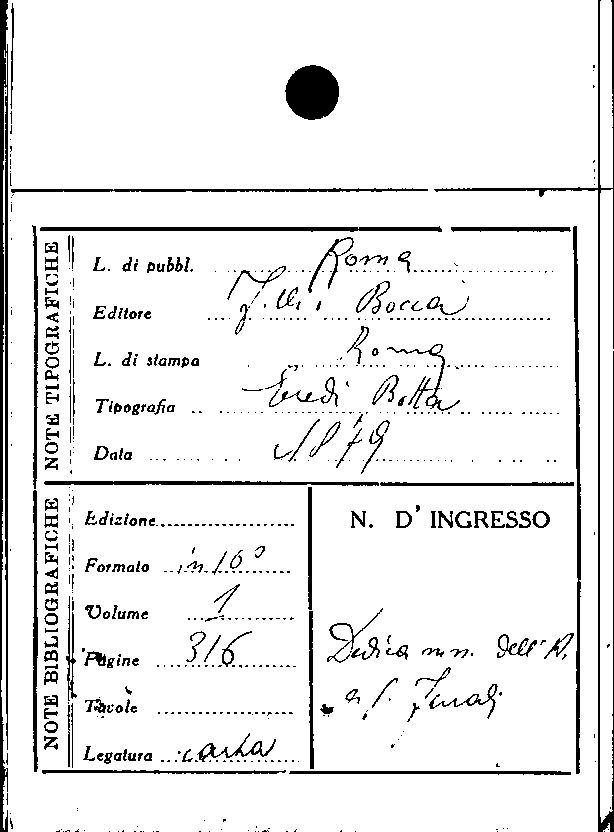 NOTE TIPOGRAFICHE
L. di pubbl. Roma
Editore F.lli Bocca
L. di stampa Roma
Tipografia Eredi Botta
Data 1879
NOTE BIBLIOGRAFICHE
Edizione
Formato in 16°
Volume 1
Pagine 316
Tavole
Legatura carta
N. D'INGRESSO
Dedica mn. dell'A.
a